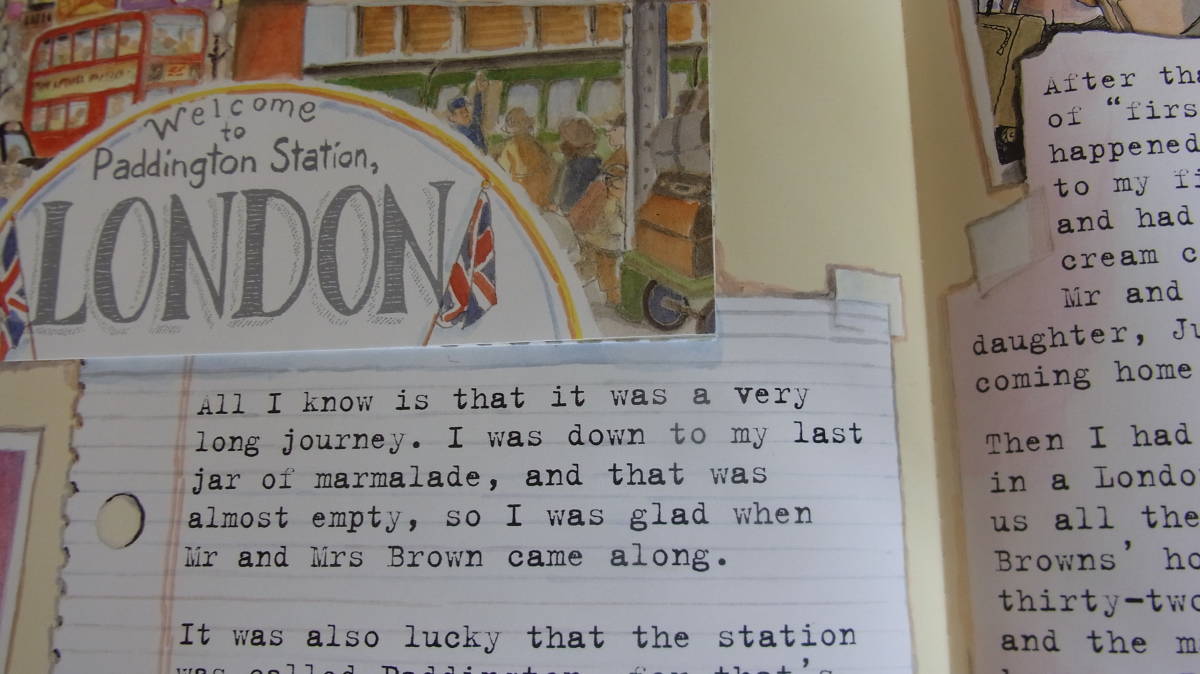 Welcome
to
Paddington Station,
LONDON
All I know is that it was a very
long journey. I was down to my last
jar of marmalade, and that was
almost empty, so I was glad when
Mr and Mrs Brown came along.
It was also lucky that the station
was called Paddington, for that's
After
of "first
happened
to my
and had
cream
Mr and
daughter,
coming home
Then I had
in a
us all the
Browns'
thirty-two
and the